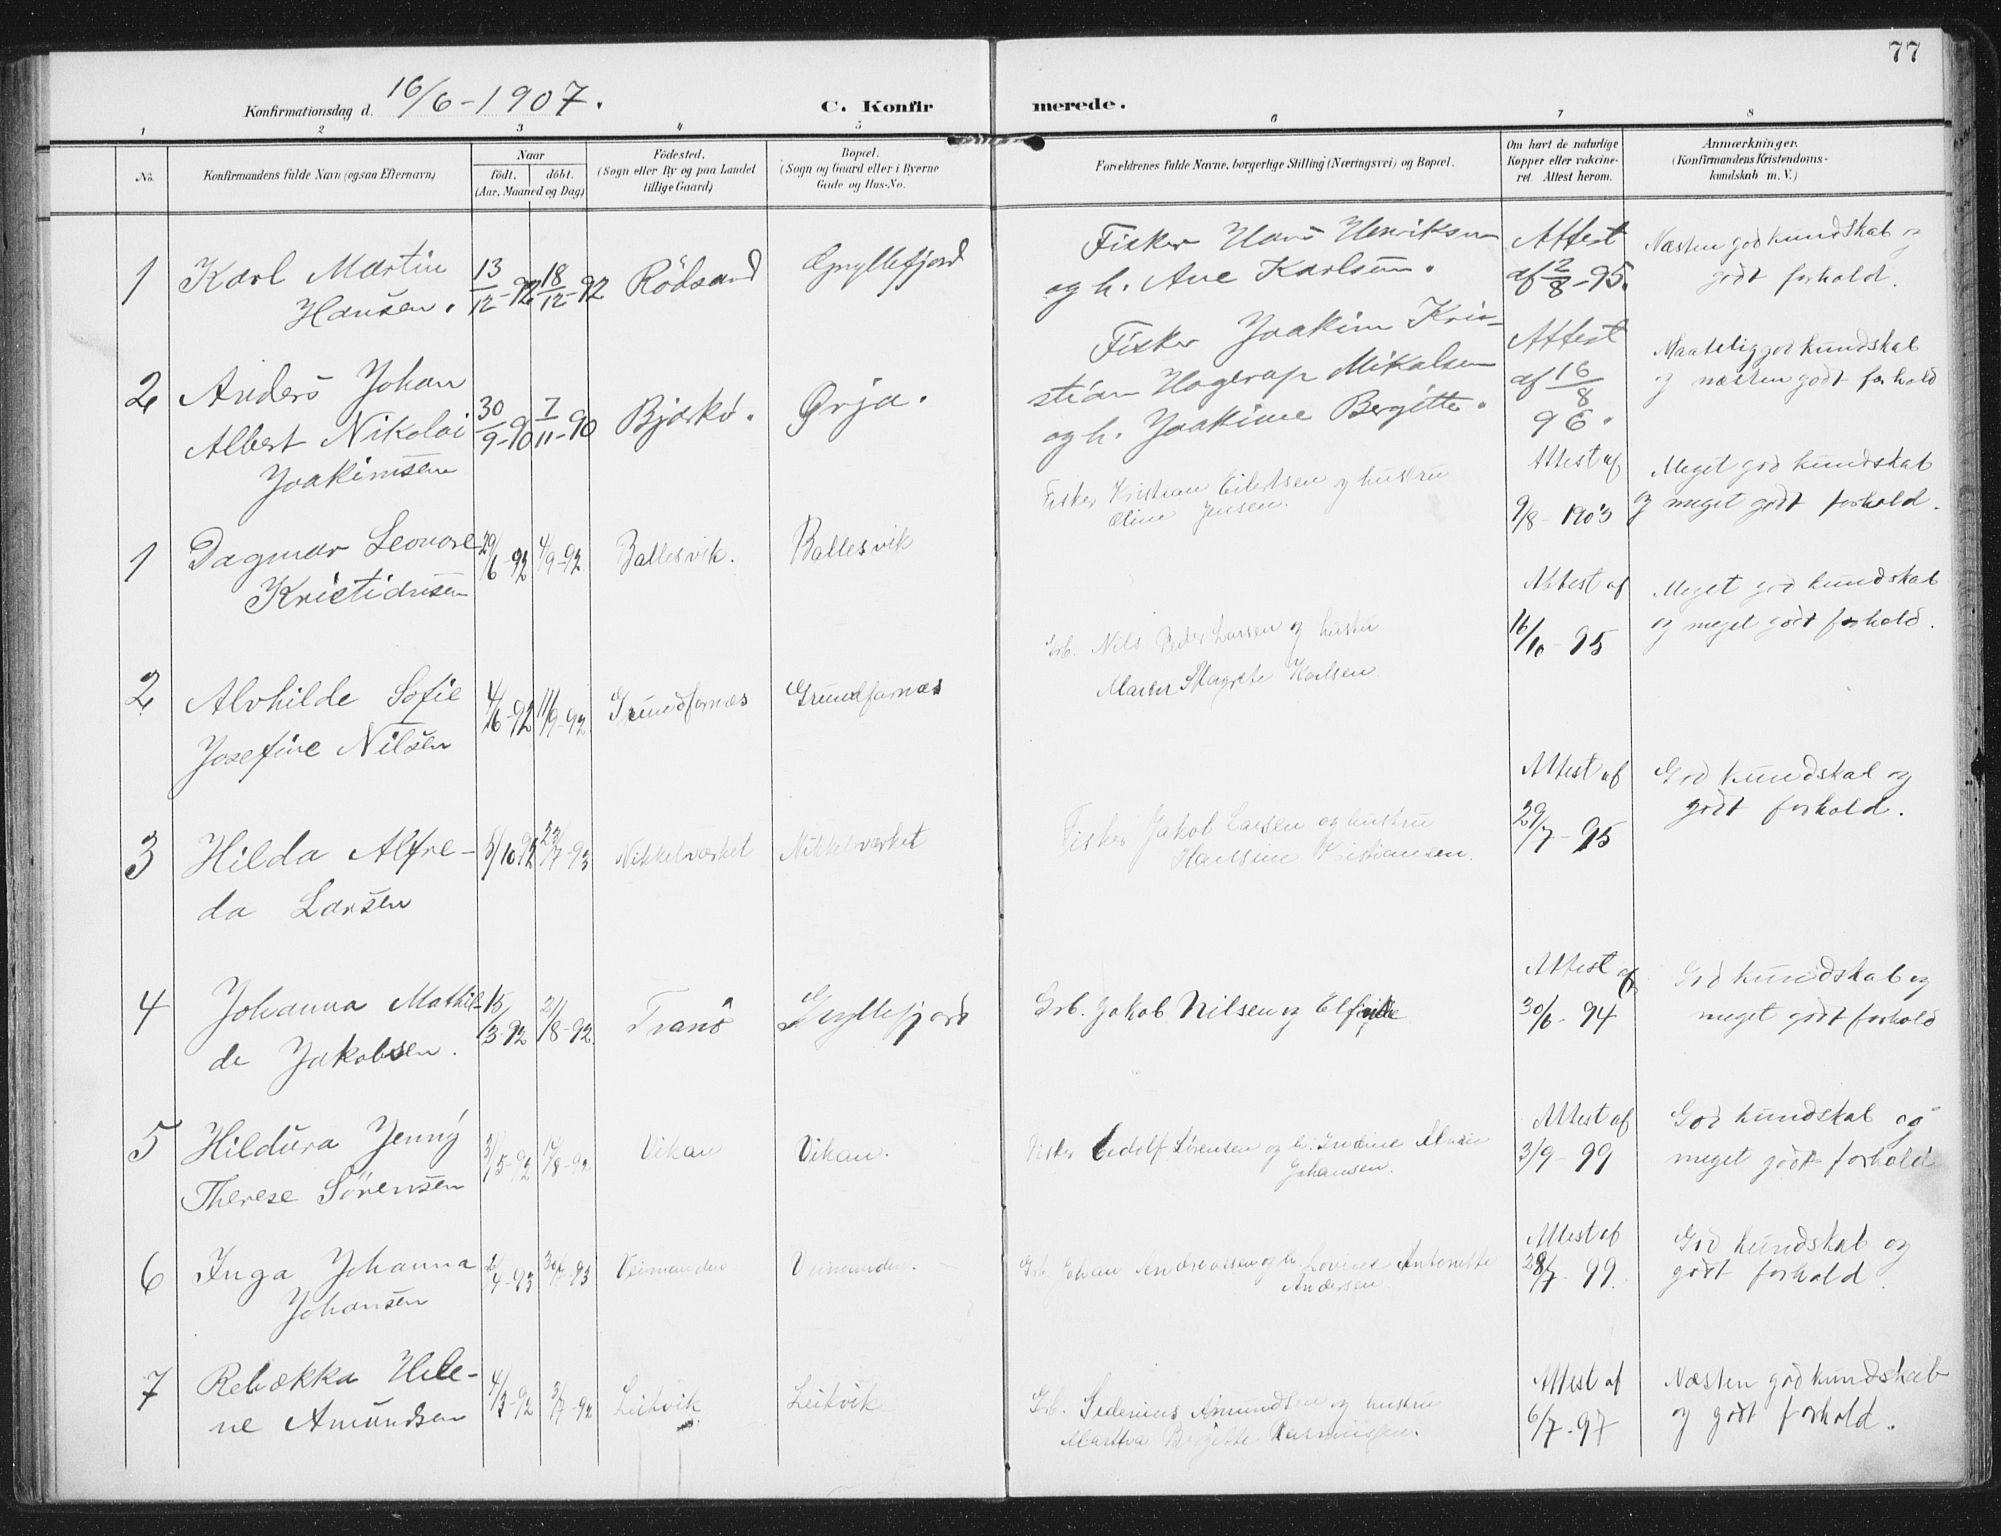 77
Konfirmationsdag d. 16/6 - 1907.
C. Konfirmerede.
1 2 3 4 5 6 7 8
No.
Konfirmandens fulde Navn (ogsaa Efternavn)
Naar
födt. döbt.
(Aar, Maaned og Dag)
Födested.
(Sogn eller By og paa Landet
tillige Gaard)
Bopæl.
(Sogn og Gaard eller i Byerne
Gade og Hus-No.
Forældrenes fulde Navne, borgerlige Stilling (Næringsvei) og Bopæl.
Om havt de naturlige
Kopper eller vakcine-
ret. Attest herom.
Anmærkninger.
(Konfirmandens Kristendoms-
kundskab m. V.)
1 Karl Martin
Hansen.
13/12-92 18/12-92 Rödsand Gryllefjord
Fisker Hans Henriksen
og h. Ane Karlsen.
Attest
af 2/8-95.
Næsten god kundskab og
godt forhold.
2 Anders Johan
Albert Nikolai
Joakimsen
30/9-90 7/11-90 Bjarkö. Ørja.
Fisker Joakim Kri-
stian Hagerap Mikalsen
og h. Joakime Bergitte.
Attest
af 16/8
96.
Maatelig god kundskab
og næsten godt forhold
1 Dagmar Leonore
Kristiansen
29/6-92 4/9-92 Ballesvik. Ballesvik
Fisker Kristian Eilertsen og hustru
Eline Jensen.
Attest af
9/8-1903
Meget god kundskab
og meget godt forhold.
2 Alvhilde Sofie
Josefine Nilsen
4/6-92 11/9-92 Grundfarnes Grundfarnes
Grb. Nils Peder Larsen og hustru
Maren Margrete Karlsen
Attest af
16/10-95
Meget god kundskab
og meget godt forhold.
3 Hilda Alfre-
da Larsen
5/10 92 23/7-93 Nikkelværket Nikkelværket
Fisker Jakob Larsen og hustru
Hansine Kristiansen.
Attest af
29/7-95
God kundskab og
godt forhold.
4 Johanna Mathil-
de Jakobsen.
15/3-92 21/8-92 Tranö Gryllefjord
Grb. Jakob Nilsen og
Attest af
30/6-94
God kundskab og
meget godt forhold
5 Hildura Jenny
Therese Sörensen
31/5-92 14/8-92 Vikan Vikan.
Fisker Ledolf Sørensen og h.
Johansen.
Attest af
3/9-99
God kundskab og
meget godt forhold
6 Inga Johanna
Johansen
/4-93 30/7-93
Grb. Johan Andreassen og h. Lovise Antonette
Andersen
Attest af
28/7-99.
God kundskab og
godt forhold
7 Rebækka Hele-
ne Amundsen
4/3-92 3/7-92 Leikvik Leikvik
Grb. Amundsen og hustru
Martha Bergitte
Attest af
6/7-97
Næsten god kundskab
og godt forhold.